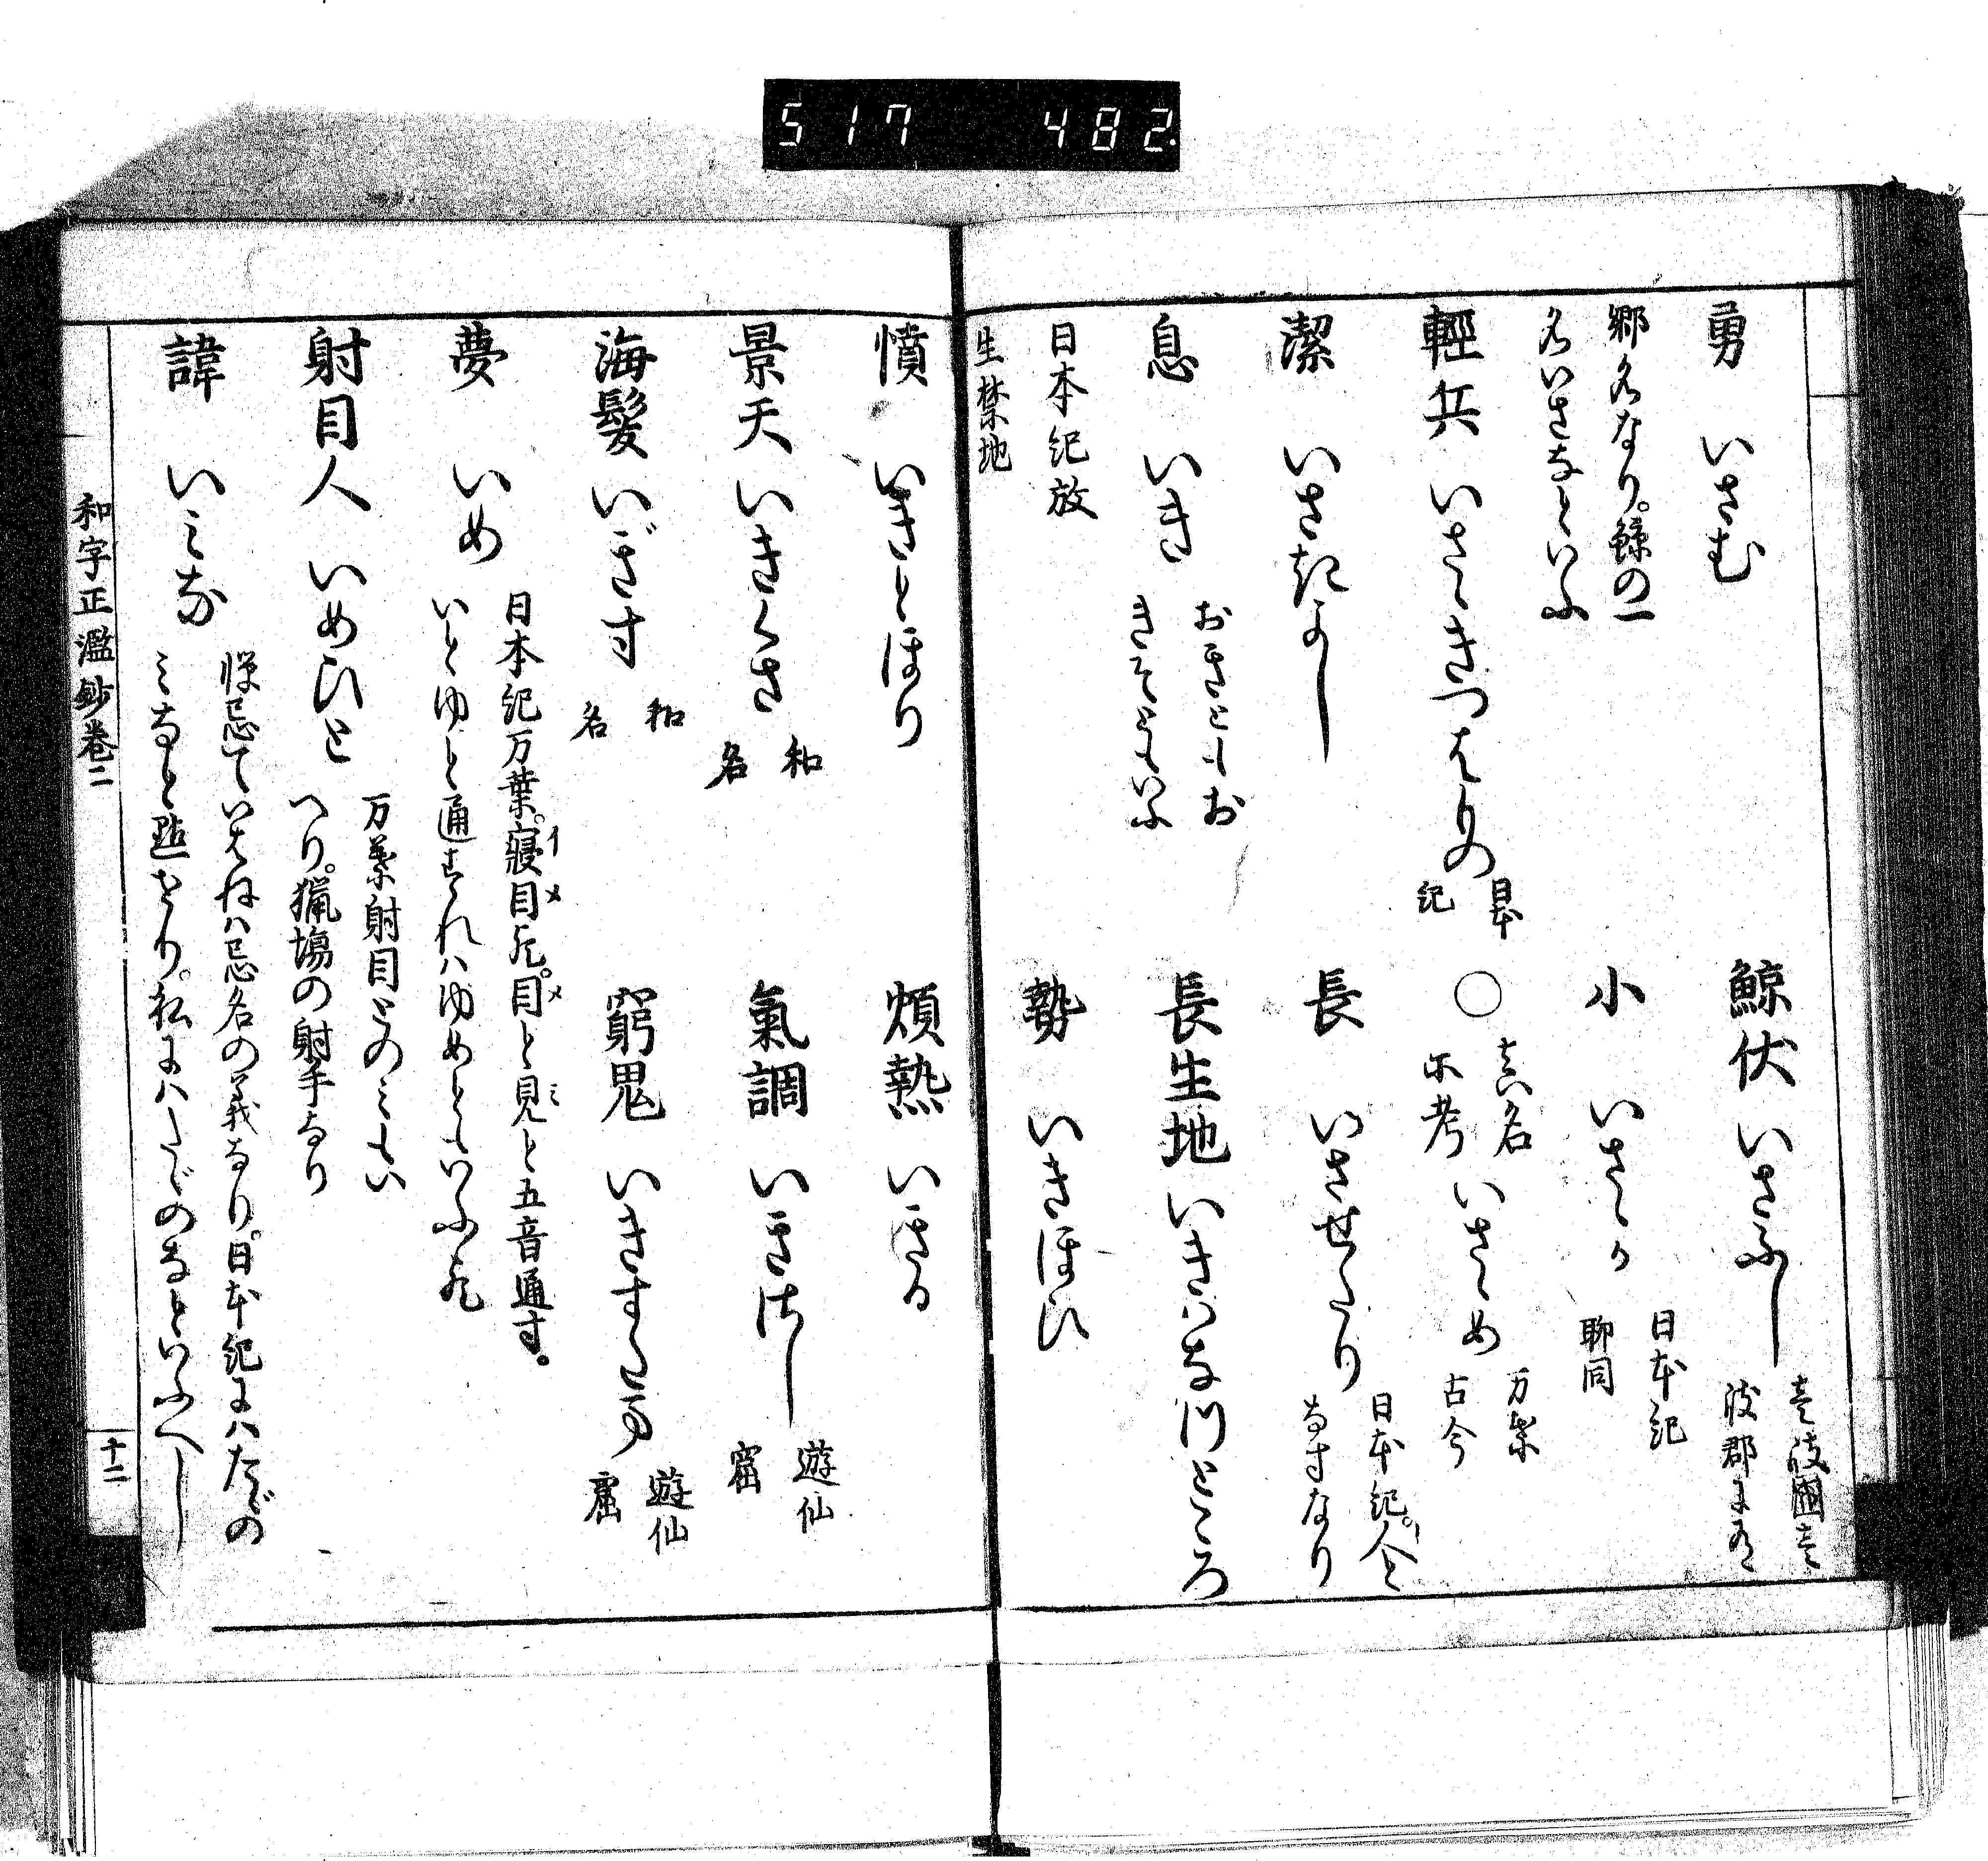 517 482
勇 いさむ
鯨伏 いさふし 壱岐國壱
岐郡に有
郷名なり。鯨の一
名いさなといふ
小 いさゝか 日本紀
聊同
輕兵 いさゝきつはもの 日本
紀
○ 真名
不考 いさゝめ 万葉
古今
潔 いさきよし
長 いさせたり 日本紀。人と
なすなり
息 いき おきともお
きそともいふ
長生地 いきはなつところ
日本紀放
生禁地
勢 いきほひ
憤 いきとほり
煩熱 いきる
景天 いきくさ 和
名
氣調 いきざし 遊仙
窟
海髪 いぎす 和
名
窮鬼 いきすたま 遊仙
窟
夢 いめ 日本紀万葉。寝目也。目と見と五音通す。
いとゆと通すれハゆめともいふ也
射目人 いめひと 万葉射目とのミもい
へり。猟場の射手なり
諱 いみな 憚忌ていはねハ忌名の義なり。日本紀にハたゞの
ミなと點せり。私にハたゞのなといふへし
和字正濫鈔巻二
十二